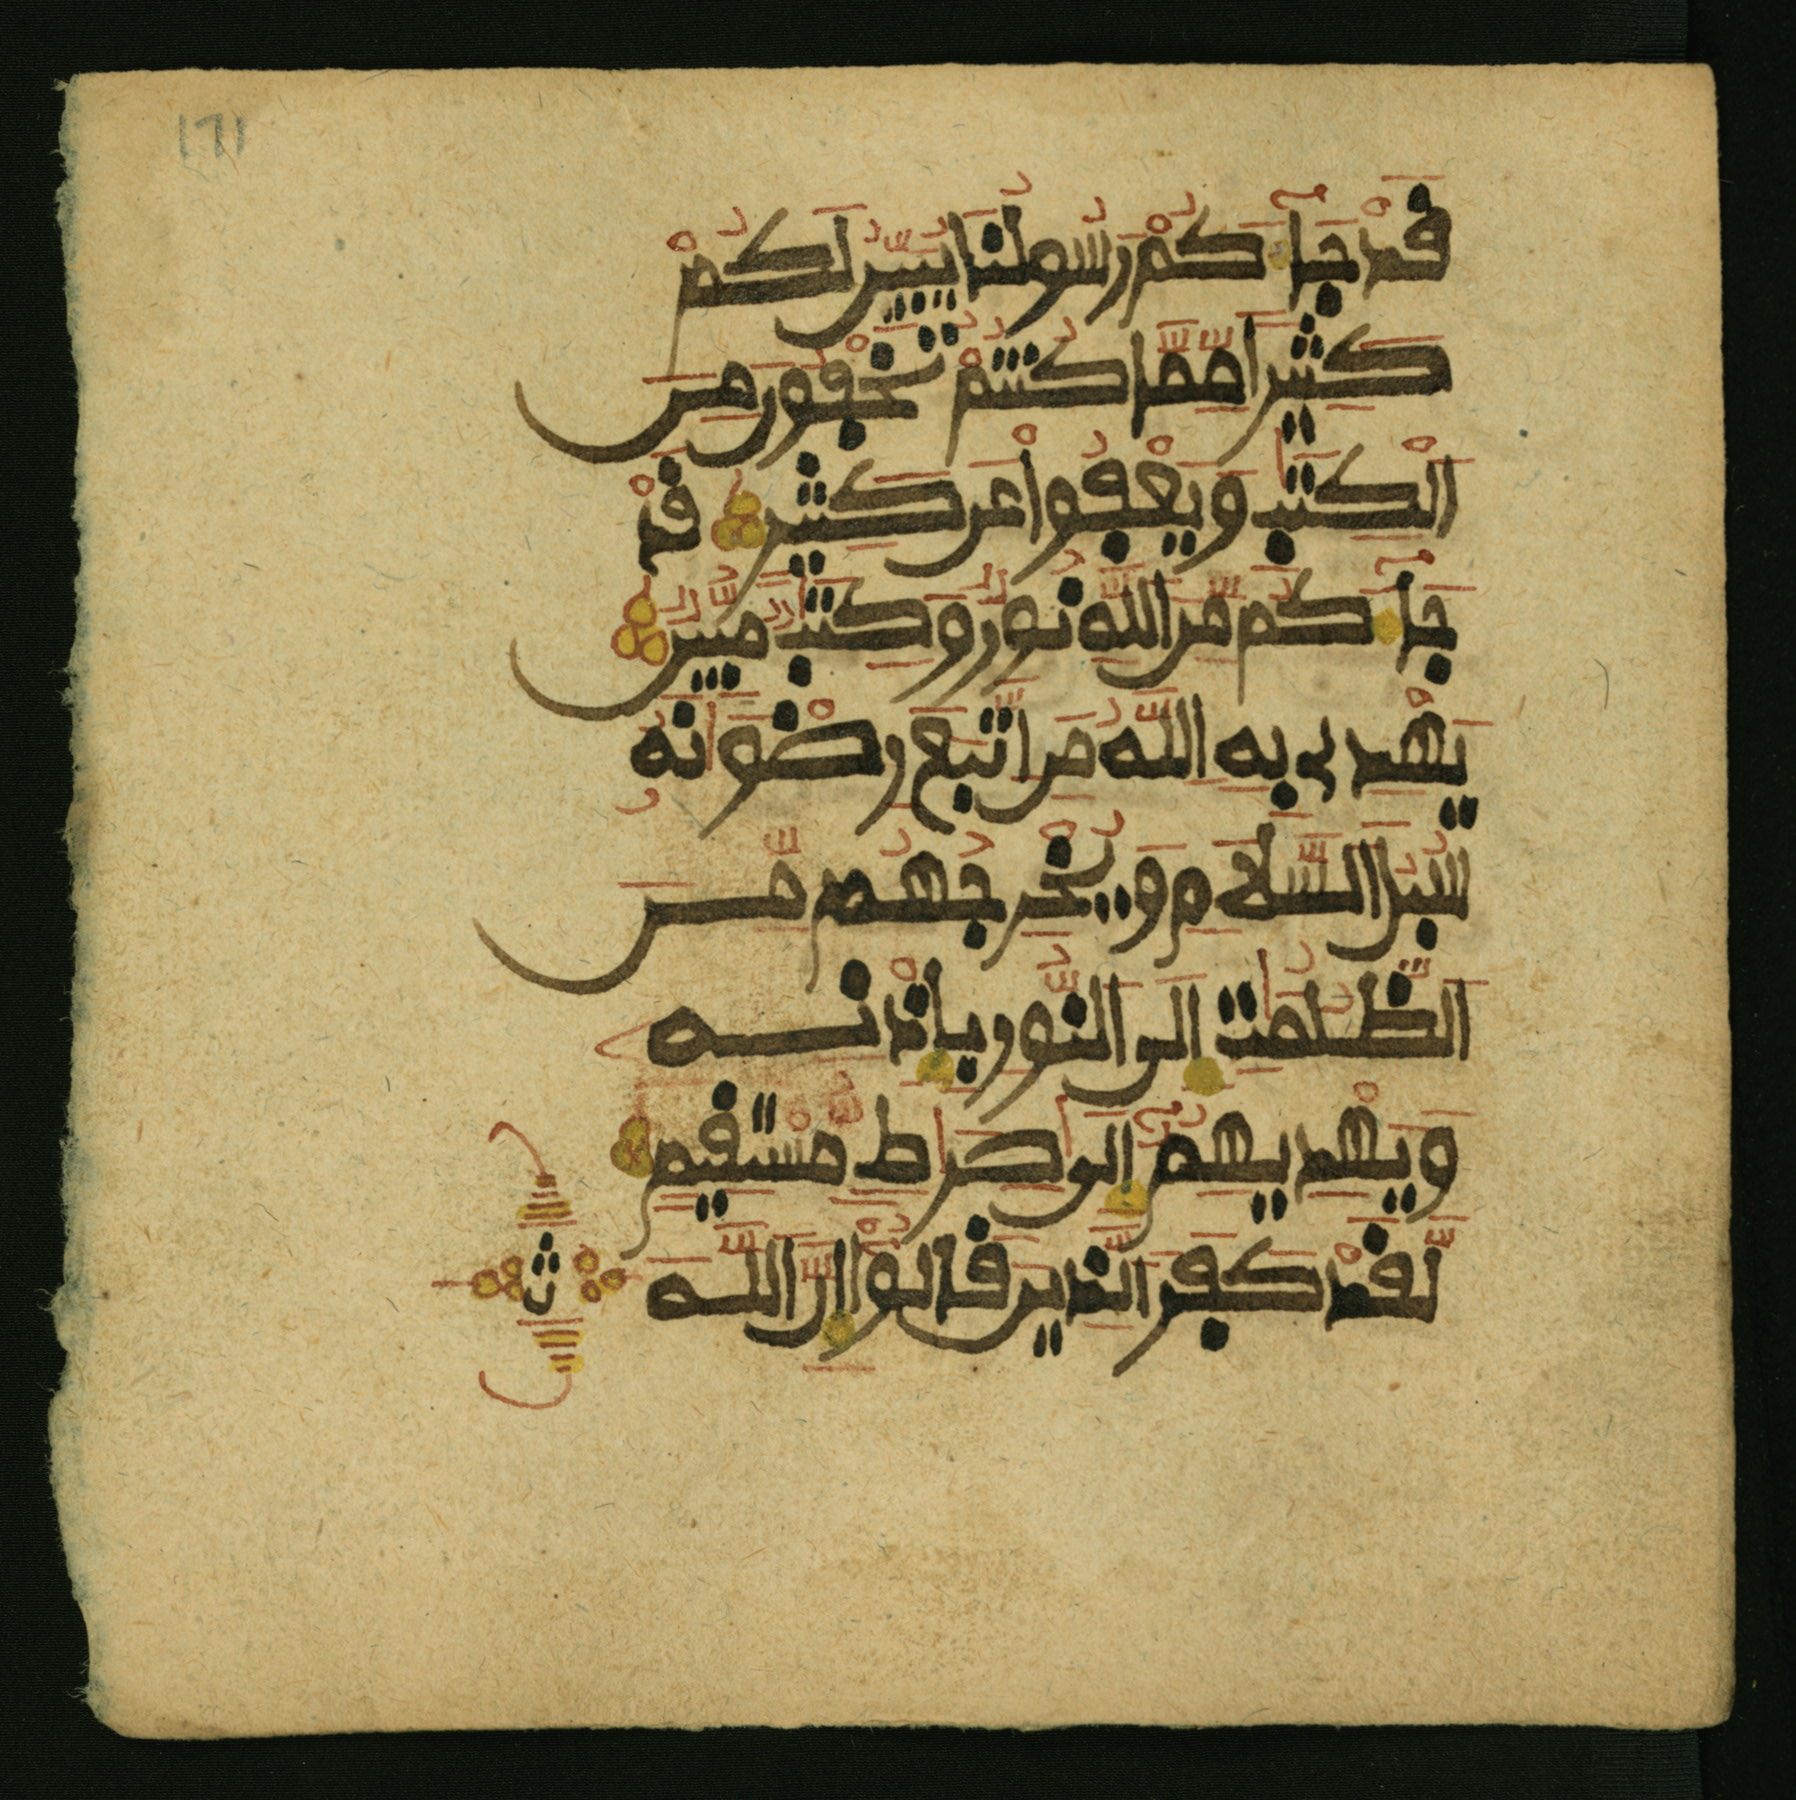 171
قَدْ جَآءَكُمْ رَسُولُنَا يُبَيِّنُ لَكُمْ
كَثِيرًا مِّمَّا كُنتُمْ تُخْفُونَ مِنَ
الْكِتَٰبِ وَيَعْفُوا عَن كَثِيرٍ قَدْ
جَآءَكُم مِّنَ اللَّهِ نُورٌ وَكِتَٰبٌ مُّبِينٌ
يَهْدِى بِهِ اللَّهُ مَنِ اتَّبَعَ رِضْوَٰنَهُ
سُبُلَ السَّلَامِ وَيُخْرِجُهُم مِّنَ
الظُّلُمَٰتِ إِلَى النُّورِ بِإِذْنِهِ
وَيَهْدِيهِمُ إِلَىٰ صِرَٰطٍ مُّسْتَقِيمٍ
لَّقَدْ كَفَرَ الَّذِينَ قَالُوا إِنَّ اللَّهَ
ث